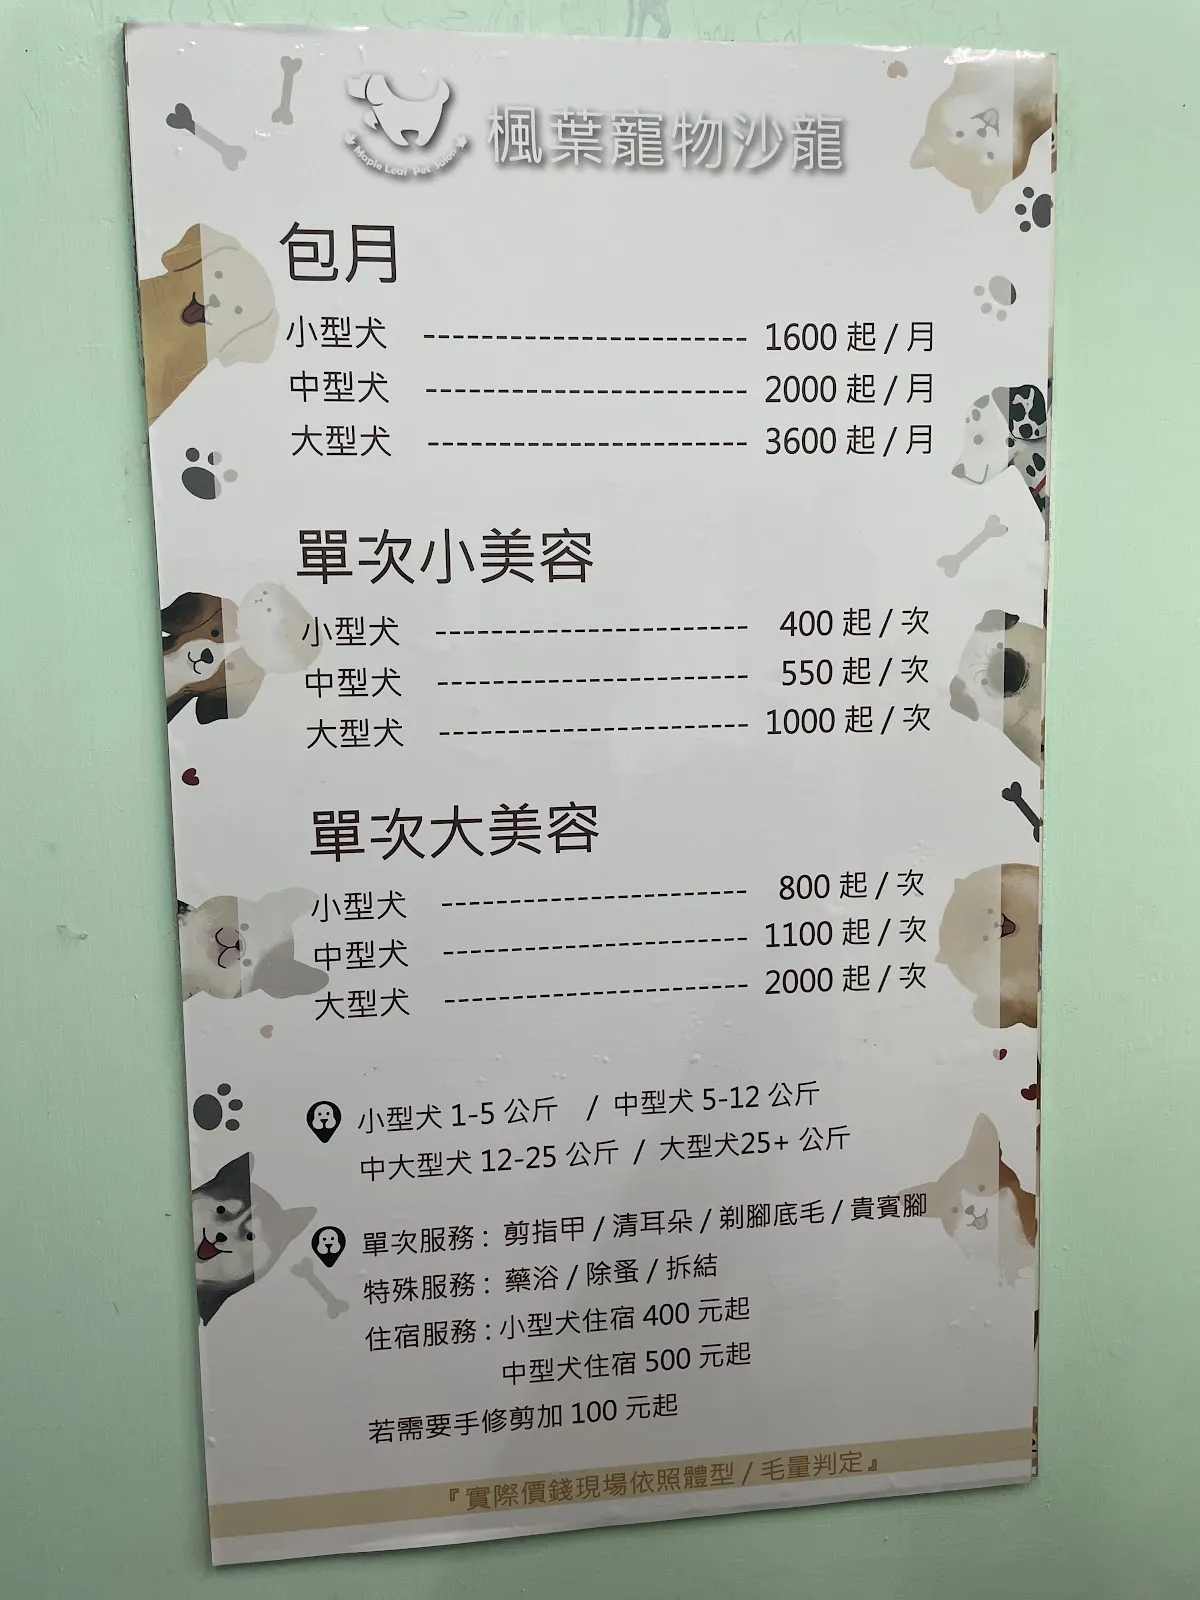 Maple Leaf Pet Salon
楓葉寵物沙龍
包月
小型犬 ----------------------- 1600 起 / 月
中型犬 ----------------------- 2000 起 / 月
大型犬 ----------------------- 3600 起 / 月
單次小美容
小型犬 ----------------------- 400 起 / 次
中型犬 ----------------------- 550 起 / 次
大型犬 ----------------------- 1000 起 / 次
單次大美容
小型犬 ----------------------- 800 起 / 次
中型犬 ----------------------- 1100 起 / 次
大型犬 ----------------------- 2000 起 / 次
小型犬 1-5 公斤 / 中型犬 5-12 公斤
中大型犬 12-25 公斤 / 大型犬25+ 公斤
單次服務 : 剪指甲 / 清耳朵 / 剃腳底毛 / 貴賓腳
特殊服務 : 藥浴 / 除蚤 / 拆結
住宿服務 : 小型犬住宿 400 元起
中型犬住宿 500 元起
若需要手修剪加 100 元起
『實際價錢現場依照體型 / 毛量判定』